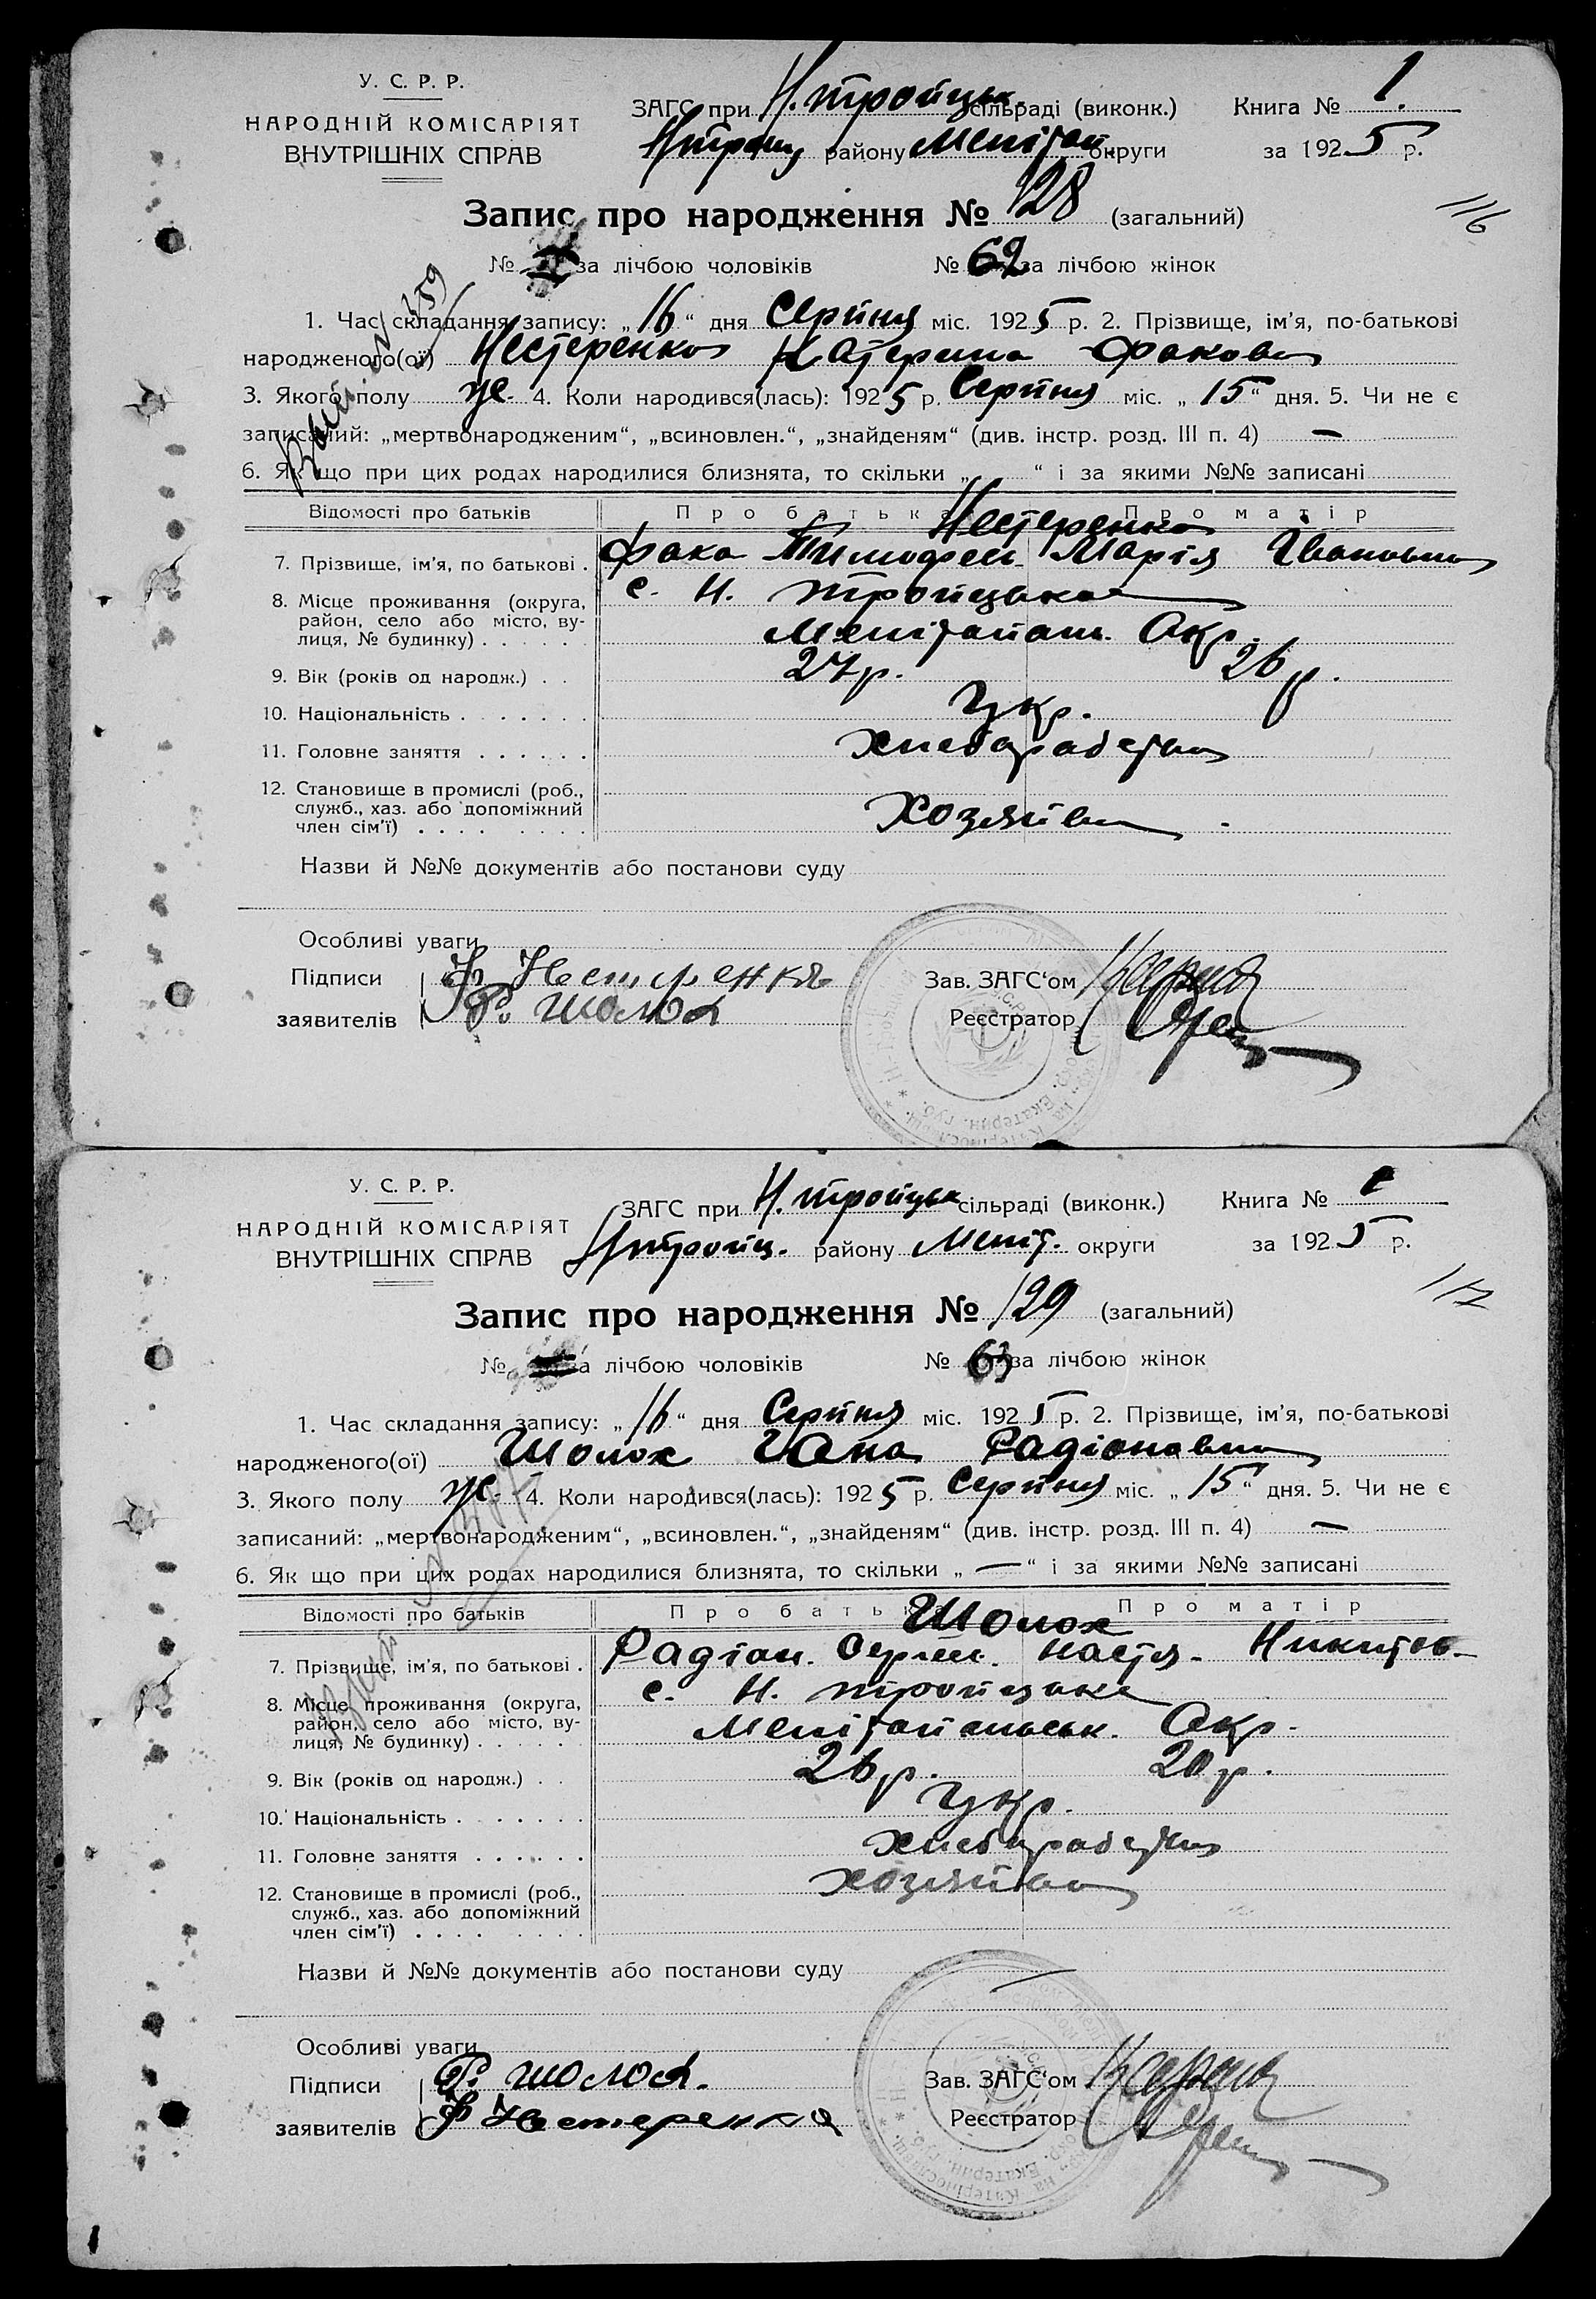 У. С. Р. Р.
НАРОДНІЙ КОМІСАРІЯТ
ВНУТРІШНІХ СПРАВ
ЗАГС при Н. троицьк. сільраді (виконк.) Книга № 1.
району Меліт. округи за 1925 р.
116
Запис про народження № 128 (загальний)
№ за лічбою чоловіків № 62 за лічбою жінок
1. Час складання запису: „16“ дня Серпня міс. 1925 р. 2. Прізвище, ім’я, по-батькові
народженого(ої) Нестеренко Катерина Фоковна
3. Якого полу ж. 4. Коли народився(лась): 1925 р. Серпня міс. „15“ дня. 5. Чи не є
записаний: „мертвонародженим“, „всиновлен.“, „знайденям“ (див. інстр. розд. III п. 4) —
6. Як що при цих родах народилися близнята, то скільки „ “ і за якими №№ записані
Відомості про батьків Про батька Про матір
Нестеренко
7. Прізвище, ім’я, по батькові . Фока Тимофеи. Марія Івановна
8. Місце проживання (округа, с. Н. троицьке
район, село або місто, ву-
лиця, № будинку) . . . . . Мелітопат. Окр.
9. Вік (років од народж.) . . 27 р. 26 р.
10. Національність . . . . . . . Укр.
11. Головне заняття . . . . . . хлебороб
12. Становище в промислі (роб.,
служб., хаз. або допоміжний
член сім’ї) . . . . . . . . Хозяїва
Назви й №№ документів або постанови суду
Особливі уваги
Підписи Ф. Нестеренко Зав. ЗАГС‘ом
заявителів Р. Шолох Реєстратор
У. С. Р. Р.
НАРОДНІЙ КОМІСАРІЯТ
ВНУТРІШНІХ СПРАВ
ЗАГС при Н. троицьк сільраді (виконк.) Книга № 1
Нтроиц. району Меліт. округи за 1925 р.
117
Запис про народження № 129 (загальний)
№ за лічбою чоловіків № 63 за лічбою жінок
1. Час складання запису: „16“ дня Серпня міс. 1925 р. 2. Прізвище, ім’я, по-батькові
народженого(ої) Шолох Гана Радіоновна
3. Якого полу ж. 4. Коли народився(лась): 1925 р. Серпня міс. „15“ дня. 5. Чи не є
записаний: „мертвонародженим“, „всиновлен.“, „знайденям“ (див. інстр. розд. III п. 4) —
6. Як що при цих родах народилися близнята, то скільки „—“ і за якими №№ записані
Відомості про батьків Про батька Про матір
Шолох
7. Прізвище, ім’я, по батькові . Радіон. Сергеи. Настя. Никитов.
8. Місце проживання (округа, с. Н. троицьке
район, село або місто, ву-
лиця, № будинку) . . . . . Мелітопольськ. Окр.
9. Вік (років од народж.) . . 26 р. 20 р.
10. Національність . . . . . . . Укр.
11. Головне заняття . . . . . . хлебороб
12. Становище в промислі (роб., хозяїва
служб., хаз. або допоміжний
член сім’ї) . . . . . . . .
Назви й №№ документів або постанови суду —
Особливі уваги
Підписи Р. Шолох. Зав. ЗАГС‘ом
заявителів Ф Нестеренко Реєстратор